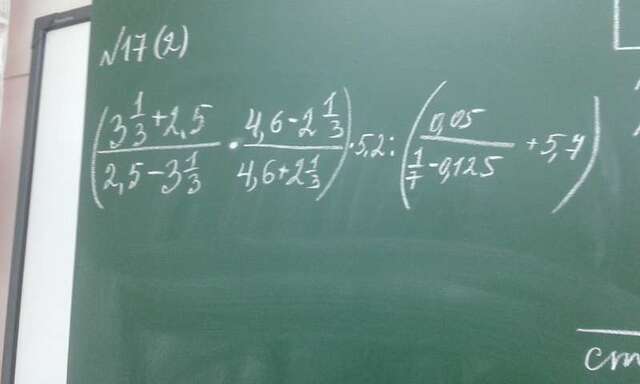 №17(2)
(3 1/3 + 2,5 / 2,5 - 3 1/3 · 4,6 - 2 1/3 / 4,6 + 2 1/3) · 5,2 : (0,05 / 1/7 - 0,125 + 5,7)
ст